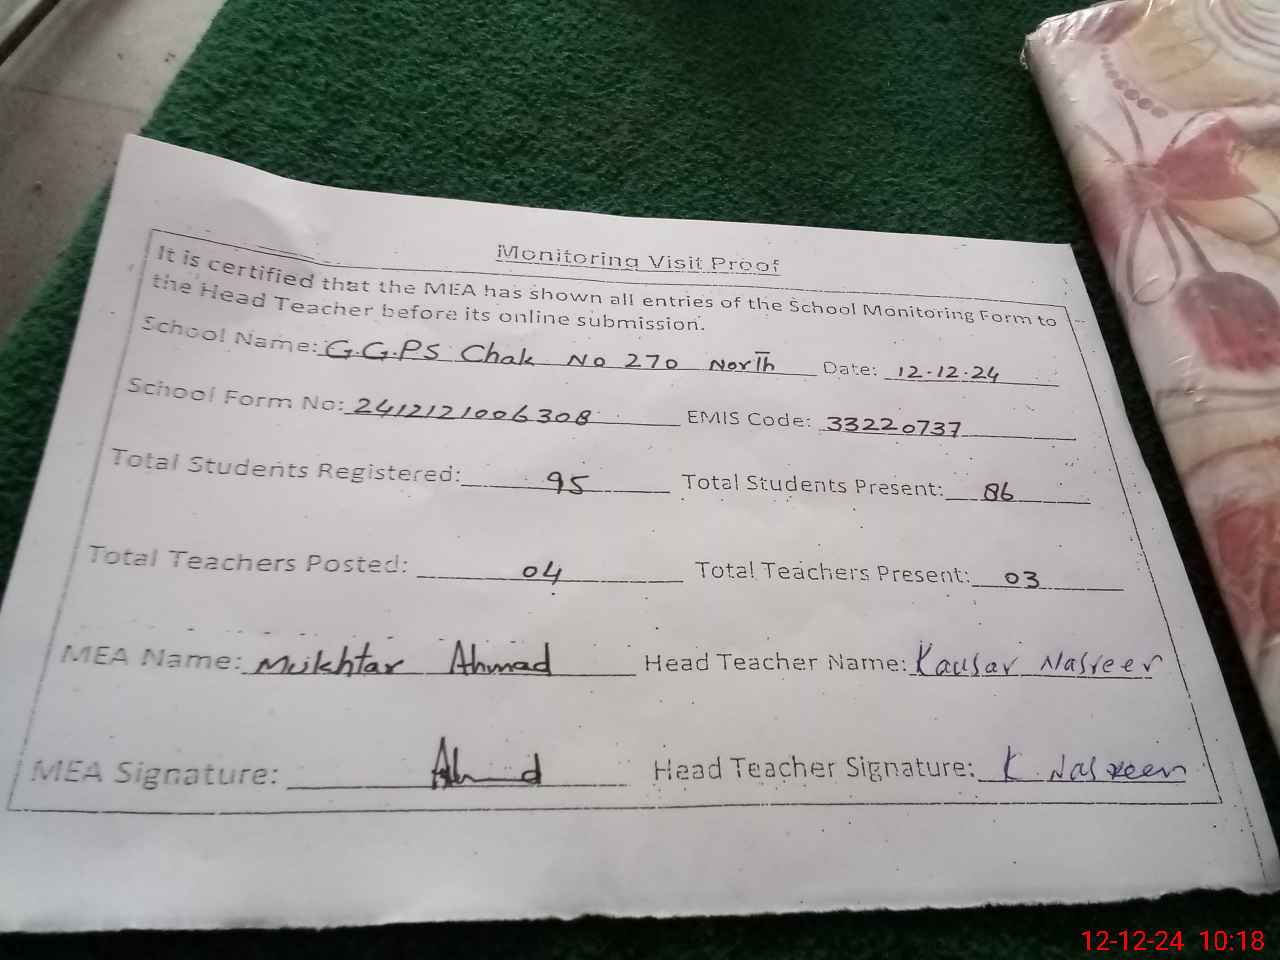 Monitoring Visit Proof
It is certified that the MEA has shown all entries of the School Monitoring Form to
the Head Teacher before its online submission.
School Name: G.G.P.S Chak No 270 North Date: 12.12.24
School Form No: 2412121006308 EMIS Code: 33220737
Total Students Registered: 95 Total Students Present: 86
Total Teachers Posted: 04 Total Teachers Present: 03
MEA Name: Mukhtar Ahmad Head Teacher Name: Kausar Nasreen
MEA Signature: Ahmad Head Teacher Signature: K. Nasreen
12-12-24 10:18